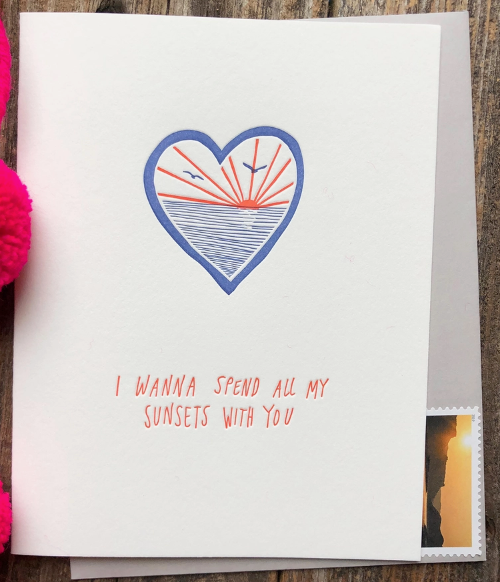 I WANNA SPEND ALL MY
SUNSETS WITH YOU